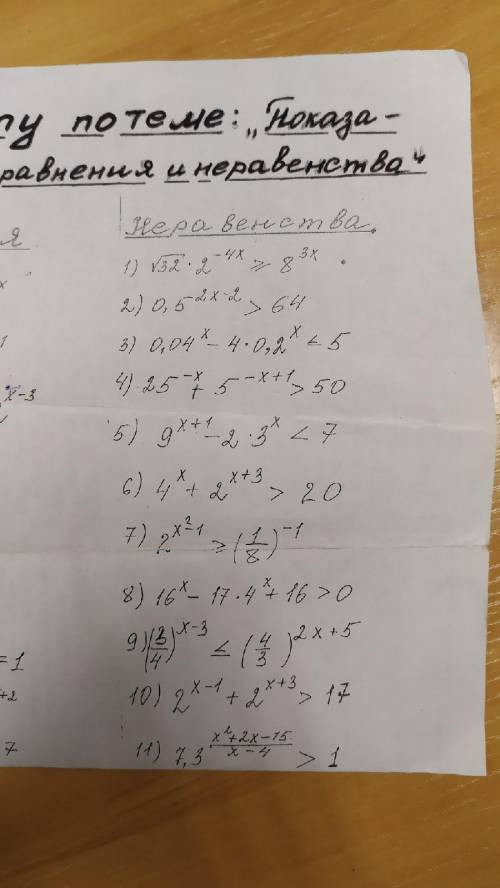 по теме: „Показа-
равнения и неравенства"
я
Неравенства.
1) √32 · 2^(-4x) ≥ 8^(3x)
2) 0,5^(2x-2) > 64
3) 0,04^x - 4·0,2^x < 5
x-3
4) 25^(-x) + 5^(-x+1) > 50
5) 9^(x+1) - 2·3^x < 7
6) 4^x + 2^(x+3) > 20
7) 2^(x²-1) ≥ (1/8)^(-1)
8) 16^x - 17·4^x + 16 > 0
9) (3/4)^(x-3) ≤ (4/3)^(2x+5)
=1
+2
10) 2^(x-1) + 2^(x+3) > 17
7
11) 7,3^((x²+2x-15)/(x-4)) > 1